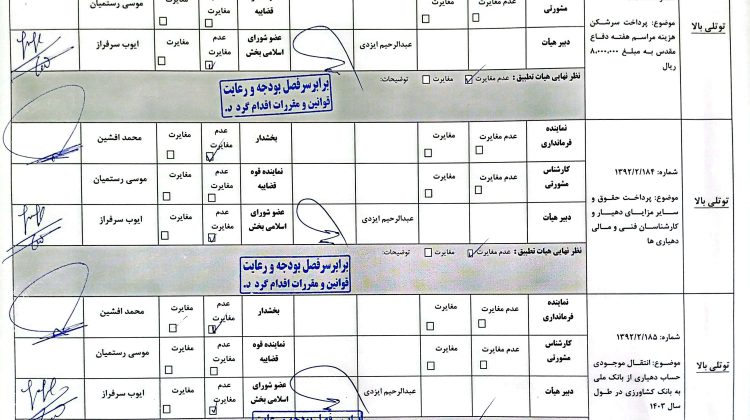 توتلی بالا
موضوع: پرداخت سرشکن
هزینه مراسم هفته دفاع
مقدس به مبلغ ۸،۰۰۰،۰۰۰
ریال
مشورتی
مغایرت
قضاییه
موسی رستمیان
دبیر هیات
عبدالرحیم ایزدی
عضو شورای
اسلامی بخش
عدم
مغایرت
مغایرت
ایوب سرفراز
نظر نهایی هیات تطبیق: عدم مغایرت مغایرت توضیحات:
برابر سرفصل بودجه و رعایت
قوانین و مقررات اقدام گردد.
توتلی بالا
شماره: ۱۳۹۲/۲/۱۸۴
موضوع: پرداخت حقوق و
سایر مزایای دهیار و
کارشناسان فنی و مالی
دهیاری ها
نماینده
فرمانداری
عدم مغایرت
مغایرت
بخشدار
عدم
مغایرت
مغایرت
محمد افشین
کارشناس
مشورتی
عدم مغایرت
مغایرت
نماینده قوه
قضاییه
مغایرت
موسی رستمیان
دبیر هیات
عبدالرحیم ایزدی
عضو شورای
اسلامی بخش
عدم
مغایرت
مغایرت
ایوب سرفراز
نظر نهایی هیات تطبیق: عدم مغایرت مغایرت توضیحات:
برابر سرفصل بودجه و رعایت
قوانین و مقررات اقدام گردد.
توتلی بالا
شماره: ۱۳۹۲/۲/۱۸۵
موضوع: انتقال موجودی
حساب دهیاری از بانک ملی
به بانک کشاورزی در طول
سال ۱۴۰۳
نماینده
فرمانداری
عدم مغایرت
مغایرت
بخشدار
عدم
مغایرت
مغایرت
محمد افشین
کارشناس
مشورتی
عدم مغایرت
مغایرت
نماینده قوه
قضاییه
مغایرت
موسی رستمیان
دبیر هیات
عبدالرحیم ایزدی
عضو شورای
اسلامی بخش
عدم
مغایرت
مغایرت
ایوب سرفراز